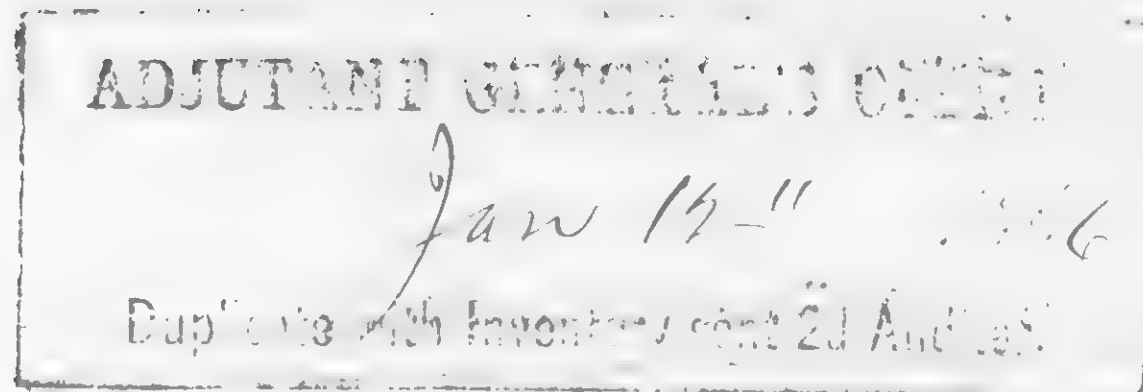 ADJUTANT GENERAL'S OFFICE
Jan 15"
Duplicate with Inventory sent 2d Auditor.